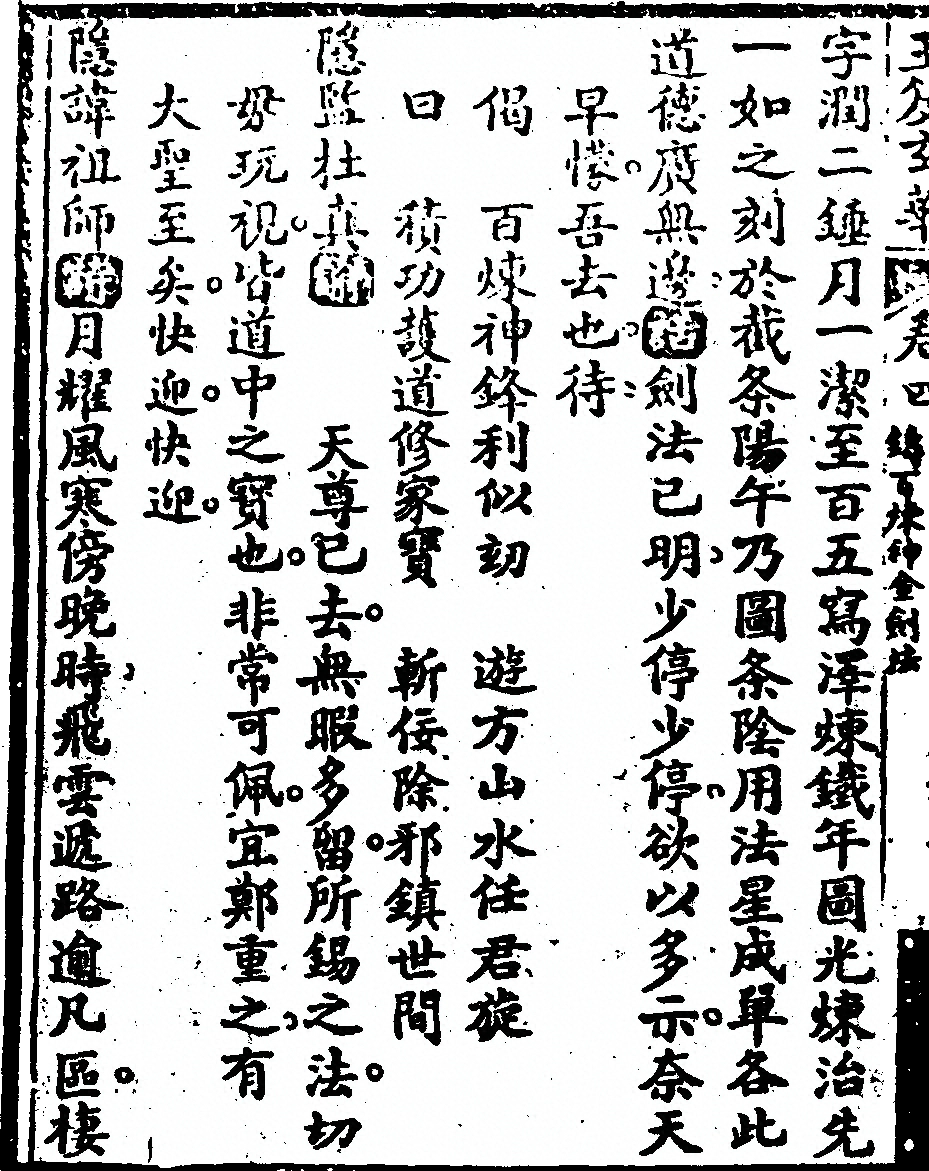 卷四 鑄百煉神金劍法
字潤二錘月一潔至百五寫澤煉鐵年圖光煉治先
一如之刻於截条陽午乃圖条陰用法星成單各此
道德廣無邊劍法已明少停少停欲以多示奈天
早懞吾去也待
偈 百煉神鋒利似刼 遊方山水任君旋
曰 積功護道修家寶 斬佞除邪鎮世間
隱監杜真 天尊已去無暇多留所錫之法切
毋玩視皆道中之寶也非常可佩宜鄭重之有
大聖至矣快迎快迎
隱諱祖師月耀風寒傍晚時飛雲遞路逾凡區棲